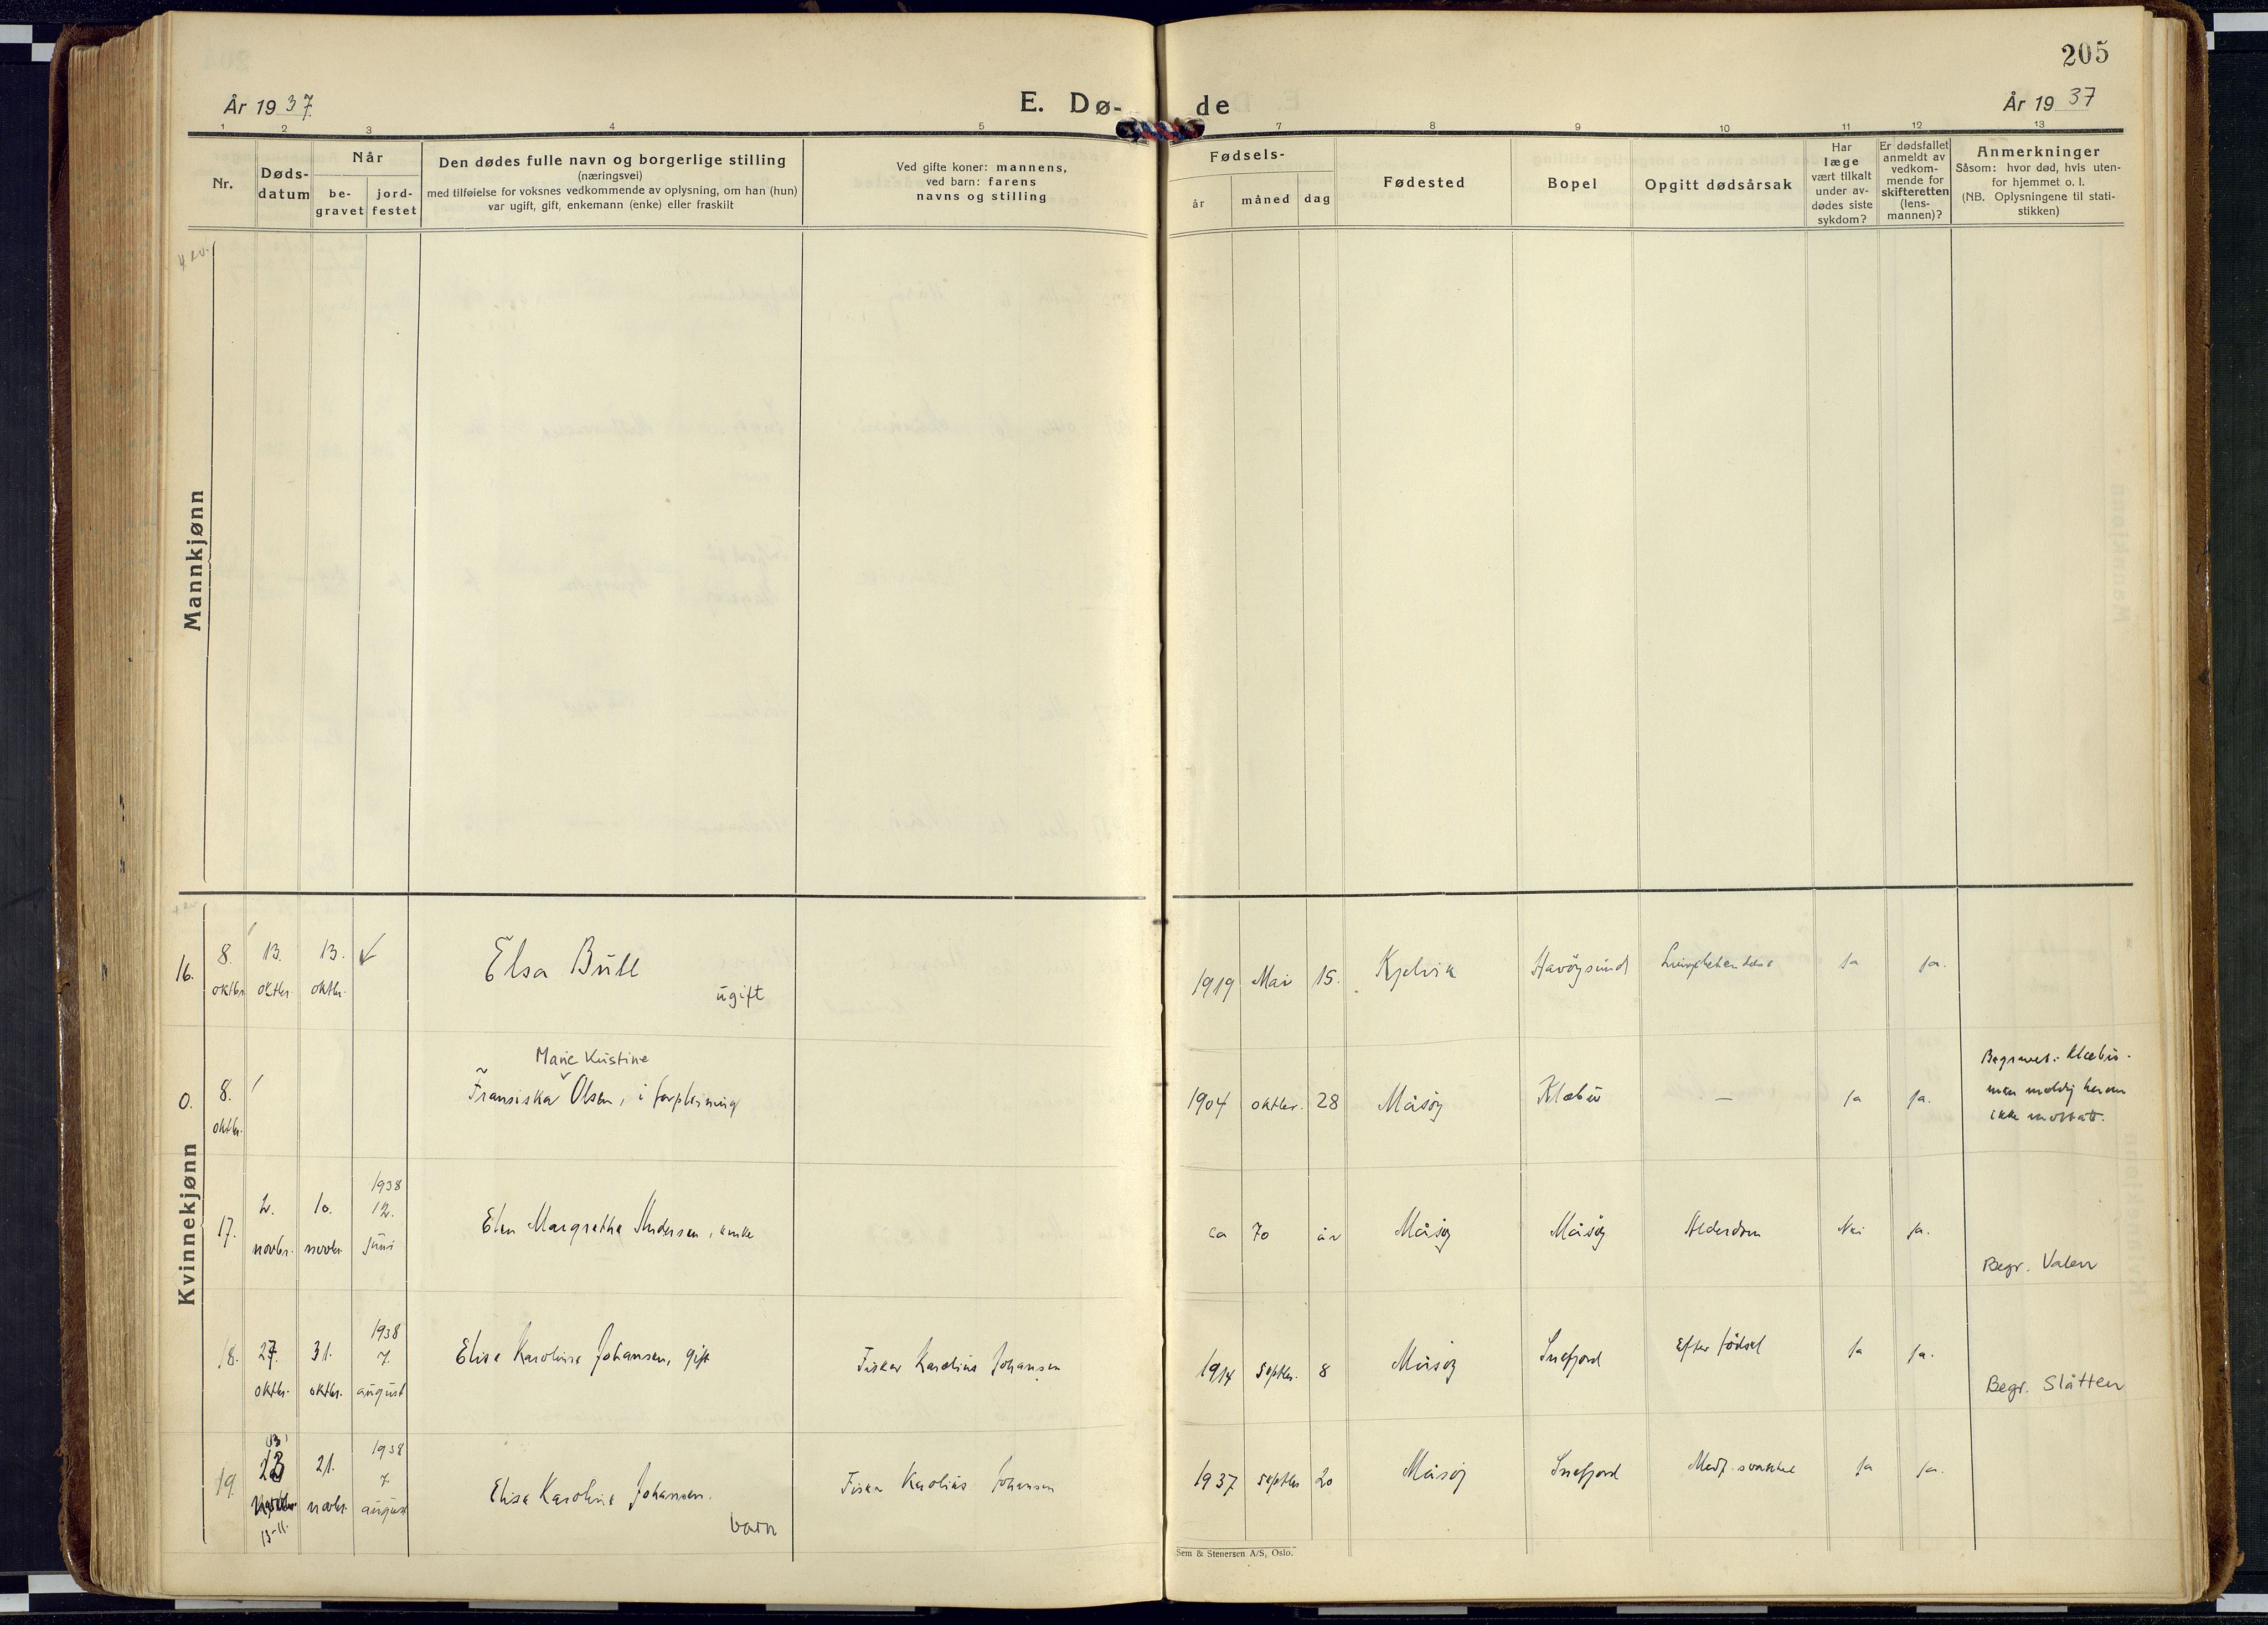 205
År 1937
E. Dø-
de
År 1937
1 2 3 4 5 7 8 9 10 11 12 13
Nr.
Døds-
datum
Når
be-
gravet
jord-
festet
Den dødes fulle navn og borgerlige stilling
(næringsvei)
med tilføielse for voksnes vedkommende av oplysning, om han (hun)
var ugift, gift, enkemann (enke) eller fraskilt
Ved gifte koner: mannens,
ved barn: farens
navns og stilling
Fødsels-
år måned dag
Fødested
Bopel
Opgitt dødsårsak
Har
læge
vært tilkalt
under av-
dødes siste
sykdom?
Er dødsfallet
anmeldt av
vedkom-
mende for
skifteretten
(lens-
mannen)?
Anmerkninger
Såsom: hvor død, hvis uten-
for hjemmet o. l.
(NB. Oplysningene til stati-
stikken)
Mannkjønn
Kvinnekjønn
16. 8. 13. 13.
oktbr. oktbr. oktbr.
Elsa Bull
ugift
1919 Mai 15. Kjelvik Havøysund Ja ja.
0. 8.
oktbr.
Marie Kristine
Fransiska Olsen, i forpleining
1904 oktbr. 28 Måsøy Klæbu — Ja ja.
Begravet i Klæbu.
men melding herom
ikke mottatt.
17. 2. 10. 1938
12.
novbr. novbr. juni
Elen Margrethe Andersen, enke
ca 70 år Måsøy Måsøy Alderdom Nei ja.
Begr. Valen
18. 27. 31. 1938
7.
oktbr. oktbr. august
Elise Karoline Johansen, gift
Fisker Karelius Johansen
1914 septbr. 8 Måsøy Snefjord Efter fødsel Ja ja.
Begr. Slåtten
19. 13 21. 1938
7.
novbr. august
13-11.
Elise Karoline Johansen.
barn
Fisker Karolius Johansen
1937 septbr 20 Måsøy Snefjord Medf. svakhet Ja ja.
Sem & Stenersen A/S, Oslo.